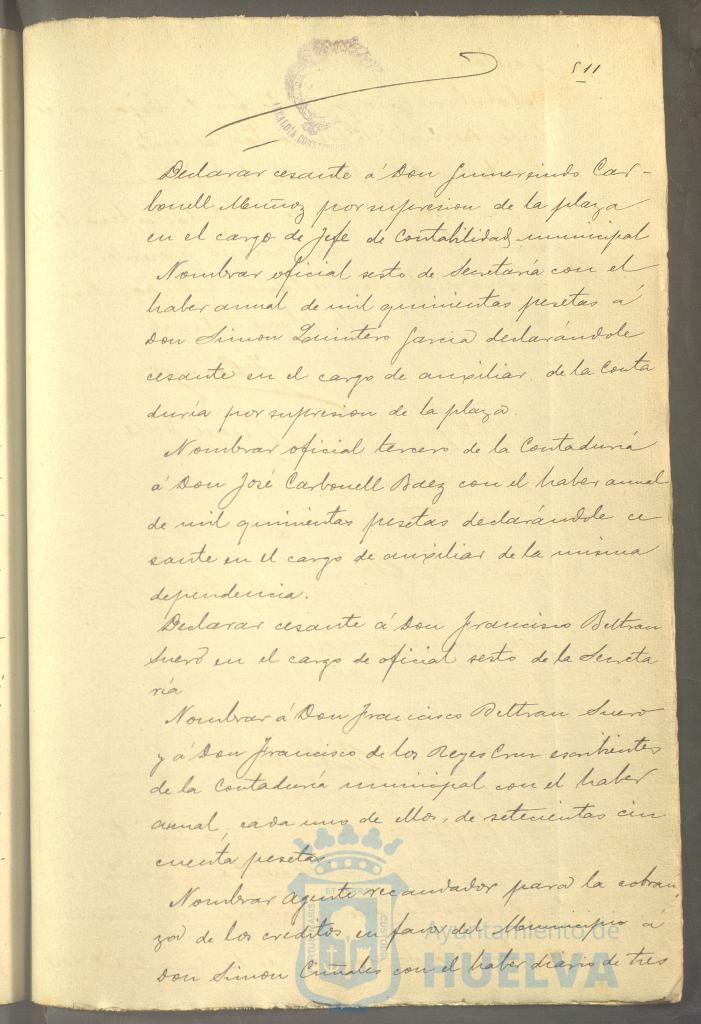 511
ALCALDÍA CONSTITUCIONAL
Declarar cesante á Don Gumersindo Car-
bonell Muñoz por supresion de la plaza
en el cargo de Jefe de Contabilidad municipal
Nombrar oficial sesto de Secretaría con el
haber anual de mil quinientas pesetas á
Don Simon Quintero Garcia declarándole
cesante en el cargo de auxiliar de la Conta
duría por supresion de la plaza.
Nombrar oficial tercero de la Contaduría
á Don José Carbonell Baez con el haber anual
de mil quinientas pesetas declarándole ce
sante en el cargo de auxiliar de la misma
dependencia.
Declarar cesante á Don Francisco Beltran
Suero en el cargo de oficial sesto de la Secreta
ría
Nombrar á Don Francisco Beltran Suero
y á Don Francisco de los Reyes Cruz escribientes
de la Contaduría municipal con el haber
anual, cada uno de ellos, de setecientas cin
cuenta pesetas.
Nombrar agente recaudador para la cobran
za de los creditos en favor del Municipio á
Don Simon con el haber diario de tres
Ayuntamiento de
HUELVA